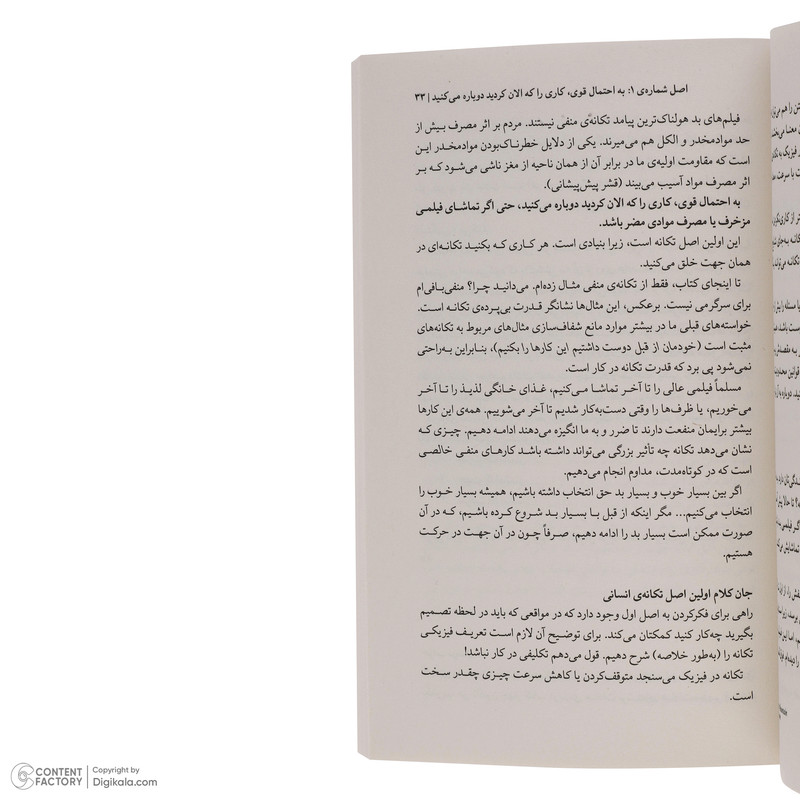 اصل شماره‌ی ۱: به احتمال قوی، کاری را که الان کردید دوباره می‌کنید | ۳۳
فیلم‌های بد هولناک‌ترین پیامد تکانه‌ی منفی نیستند. مردم بر اثر مصرف بیش از
حد موادمخدر و الکل هم می‌میرند. یکی از دلایل خطرناک‌بودن موادمخدر این
است که مقاومت اولیه‌ی ما در برابر آن از همان ناحیه از مغز ناشی می‌شود که بر
اثر مصرف مواد آسیب می‌بیند (قشر پیش‌پیشانی).
به احتمال قوی، کاری را که الان کردید دوباره می‌کنید، حتی اگر تماشای فیلمی
مزخرف یا مصرف موادی مضر باشد.
این اولین اصل تکانه است، زیرا بنیادی است. هر کاری که بکنید تکانه‌ای در
همان جهت خلق می‌کنید.
تا اینجای کتاب، فقط از تکانه‌ی منفی مثال زده‌ام. می‌دانید چرا؟ منفی‌بافی‌ام
برای سرگرمی نیست. برعکس، این مثال‌ها نشانگر قدرت بی‌پرده‌ی تکانه است.
خواسته‌های قبلی ما در بیشتر موارد مانع شفاف‌سازی مثال‌های مربوط به تکانه‌های
مثبت است (خودمان از قبل دوست داشتیم این کارها را بکنیم)، بنابراین به‌راحتی
نمی‌شود پی برد که قدرت تکانه در کار است.
مسلماً فیلمی عالی را تا آخر تماشا می‌کنیم، غذای خانگی لذیذ را تا آخر
می‌خوریم، یا ظرف‌ها را وقتی دست‌به‌کار شدیم تا آخر می‌شوییم. همه‌ی این کارها
بیشتر برایمان منفعت دارند تا ضرر و به ما انگیزه می‌دهند ادامه دهیم. چیزی که
نشان می‌دهد تکانه چه تأثیر بزرگی می‌تواند داشته باشد کارهای منفی خالصی
است که در کوتاه‌مدت، مداوم انجام می‌دهیم.
اگر بین بسیار خوب و بسیار بد حق انتخاب داشته باشیم، همیشه بسیار خوب را
انتخاب می‌کنیم... مگر اینکه از قبل با بسیار بد شروع کرده باشیم، که در آن
صورت ممکن است بسیار بد را ادامه دهیم، صرفاً چون در آن جهت در حرکت
هستیم.
جان کلام اولین اصل تکانه‌ی انسانی
راهی برای فکرکردن به اصل اول وجود دارد که در مواقعی که باید در لحظه تصمیم
بگیرید چه‌کار کنید کمکتان می‌کند. برای توضیح آن لازم است تعریف فیزیکی
تکانه را (به‌طور خلاصه) شرح دهیم. قول می‌دهم تکلیفی در کار نباشد!
تکانه در فیزیک می‌سنجد متوقف‌کردن یا کاهش سرعت چیزی چقدر سخت
است.
CONTENT FACTORY
Copyright by
Digikala.com